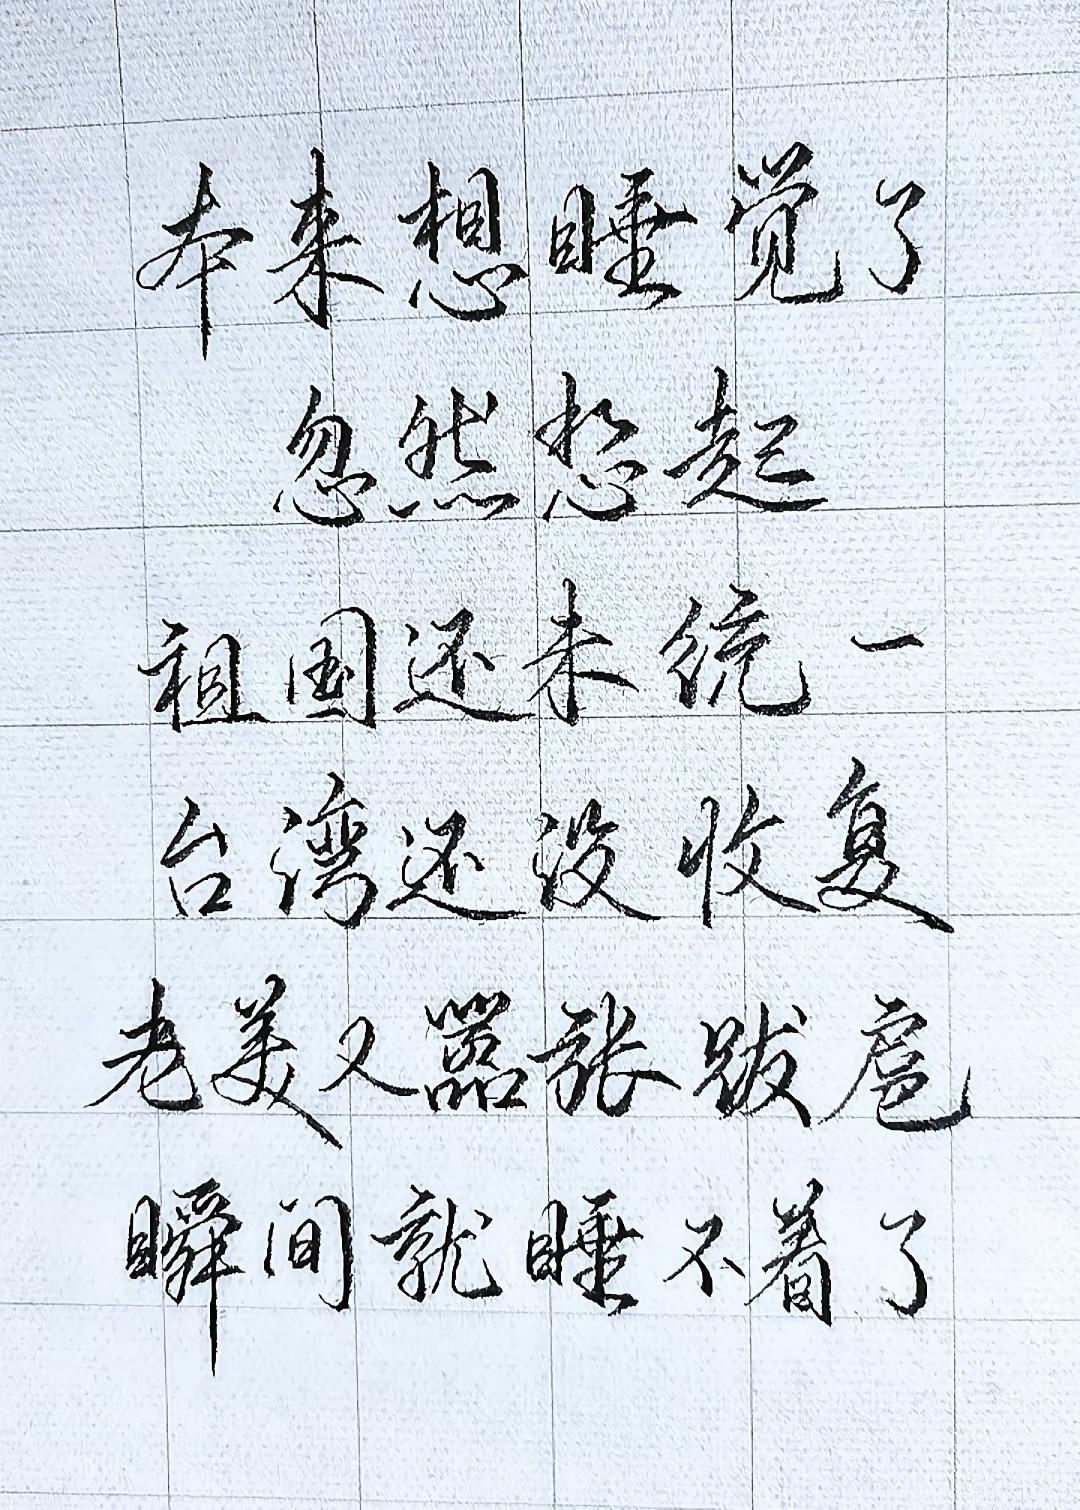 本来想睡觉了
忽然想起
祖国还未统一
台湾还没收复
老美又嚣张跋扈
瞬间就睡不着了